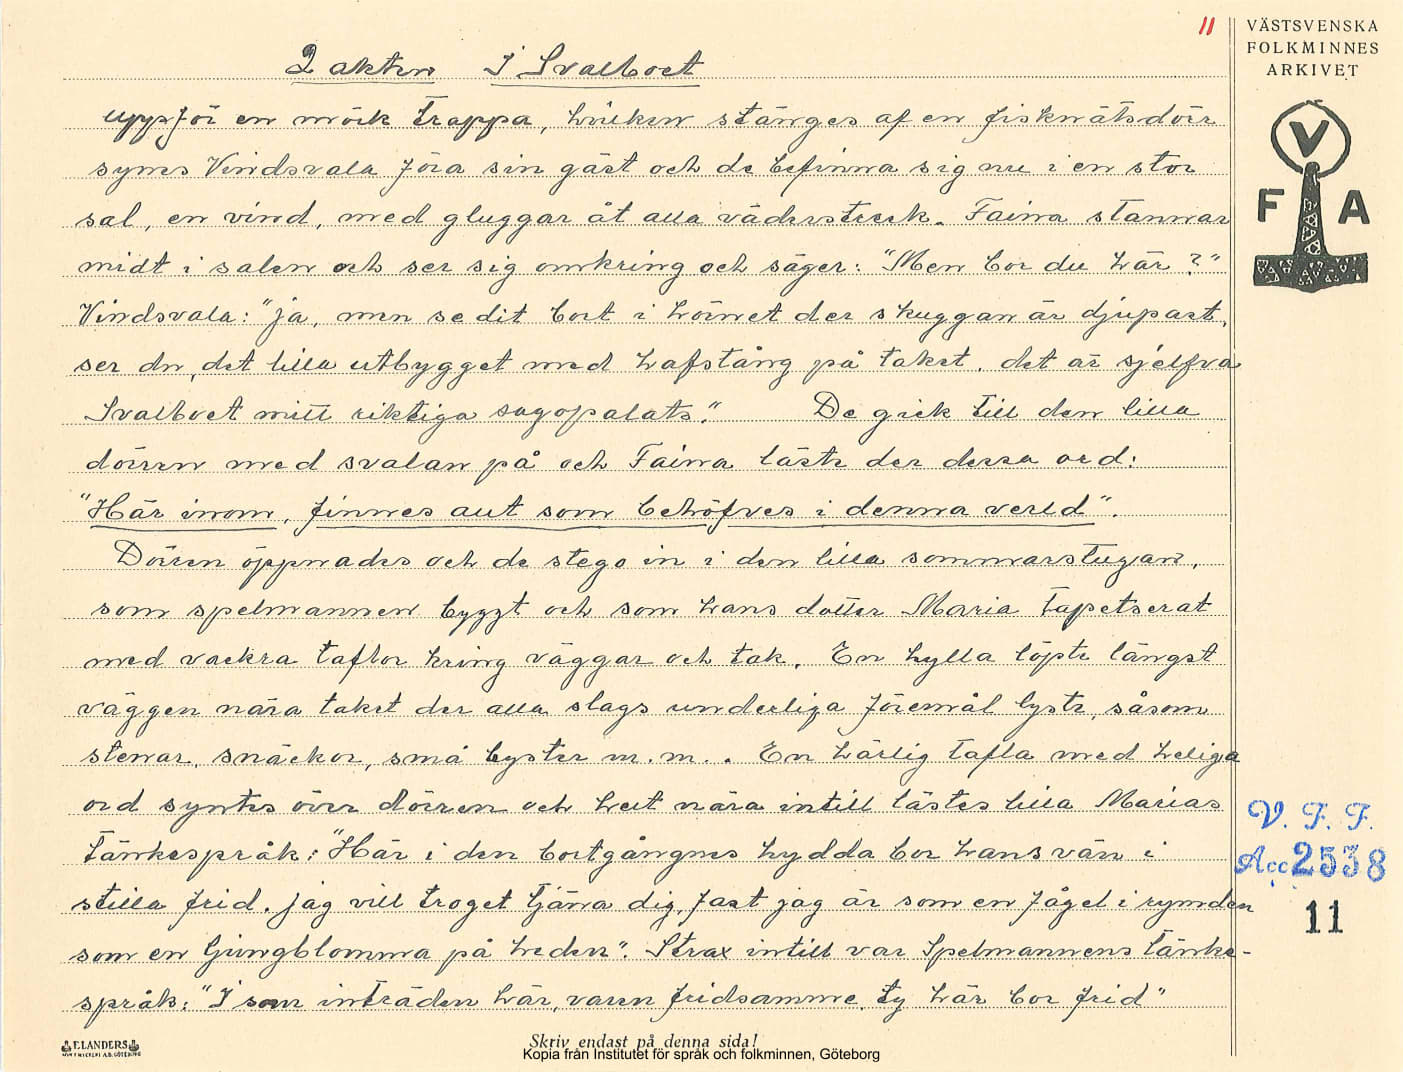 11
VÄSTSVENSKA
FOLKMINNES
ARKIVET
V
F A
2 akten I Svalboet
uppför en mörk trappa, hvilken stänges af en fisknätsdörr
synes Vindsvala föra sin gäst och de befinna sig nu i en stor
sal, en vind, med gluggar åt alla väderstreck. Faina stannar
midt i salen och ser sig omkring och säger: "Men bor du här?"
Vindsvala: "ja, men se dit bort i hörnet der skuggan är djupast,
ser du, det lilla utbygget med hafstång på taket, det är sjelfva
Svalboet mitt riktiga sagopalats." De gick till den lilla
dörren med svalan på och Faina läste der dessa ord:
"Här inom, finnes allt som behöfves i denna verld".
Dörren öppnades och de stego in i den lilla sommarstugan,
som spelmannen byggt och som hans dotter Maria tapetserat
med vackra taflor kring väggar och tak. En hylla löpte längst
väggen nära taket der alla slags underliga föremål lyste, såsom
stenar, snäckor, små byster m.m.. En härlig tafla med heliga
ord syntes över dörren och helt nära intill lästes lilla Marias
tänkespråk: "Här i den bortgångnes hydda bor hans vän i
stilla frid. jag vill troget tjäna dig, fast jag är som en fågel i rymden
som en ljungblomma på heden". Strax intill var Spelmannens tänke-
språk: "I som inträden här, varen fridsamme, ty här bor frid"
V. F. F.
Acc 2538
11
F. LANDERS
Skriv endast på denna sida!
Kopia från Institutet för språk och folkminnen, Göteborg